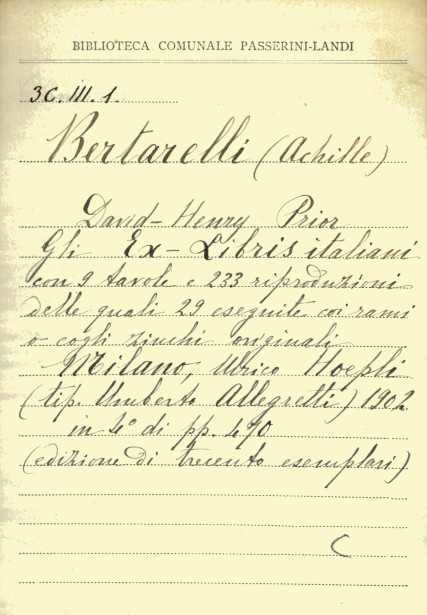 BIBLIOTECA COMUNALE PASSERINI-LANDI
3C.III.1.
Bertarelli (Achille)
David-Henry Prior
Gli Ex-Libris italiani
con 9 tavole e 233 riproduzioni
delle quali 29 eseguite coi rami
o cogli zinchi originali
Milano, Ulrico Hoepli
(tip. Umberto Allegretti) 1902
in 4° di pp. 470
(edizione di trecento esemplari)
C